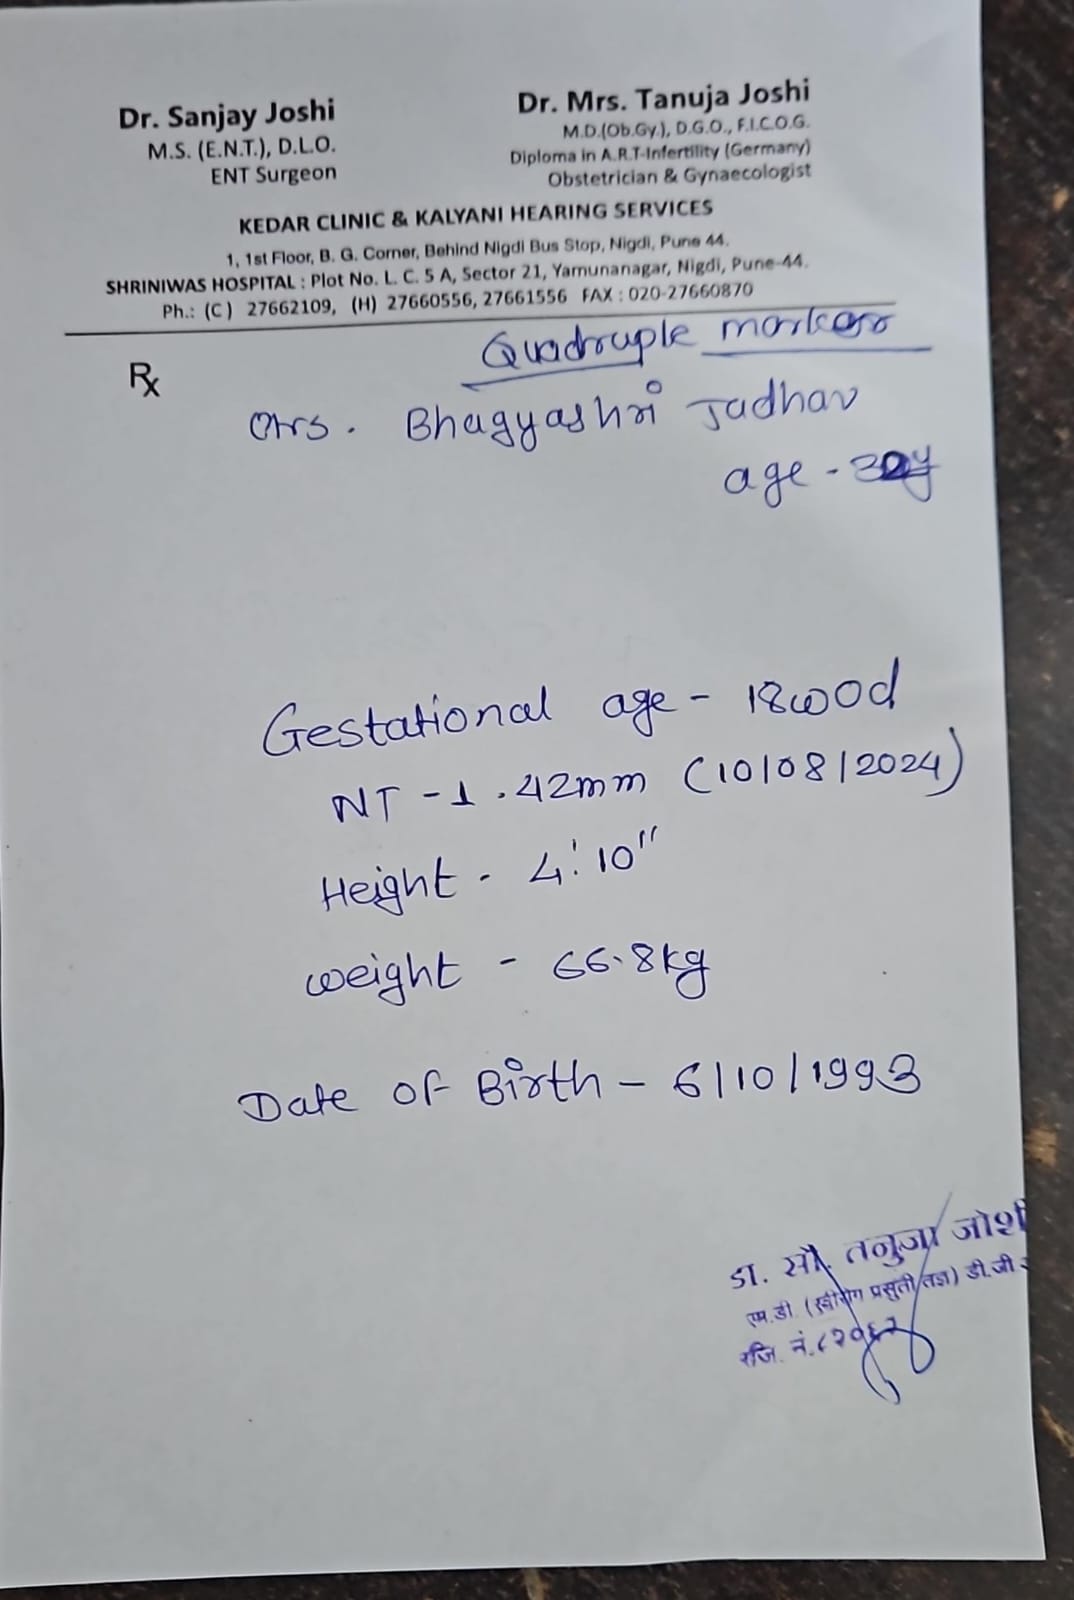 Dr. Sanjay Joshi
M.S. (E.N.T.), D.L.O.
ENT Surgeon
Dr. Mrs. Tanuja Joshi
M.D.(Ob.Gy.), D.G.O., F.I.C.O.G.
Diploma in A.R.T-Infertility (Germany)
Obstetrician & Gynaecologist
KEDAR CLINIC & KALYANI HEARING SERVICES
1, 1st Floor, B. G. Corner, Behind Nigdi Bus Stop, Nigdi, Pune 44.
SHRINIWAS HOSPITAL : Plot No. L. C. 5 A, Sector 21, Yamunanagar, Nigdi, Pune-44.
Ph.: (C) 27662109, (H) 27660556, 27661556 FAX : 020-27660870
Quadruple marker
Rx
Mrs. Bhagyashri Jadhav
age -
Gestational age - 18w0d
NT - 1.42mm (10/08/2024)
Height - 4'10"
weight - 66.8kg
Date of Birth - 6/10/1993
डा. सौ. तनुजा जोशी
एम.डी. (स्त्रीरोग प्रसुती तज्ञ) डी.जी
रजि. नं.